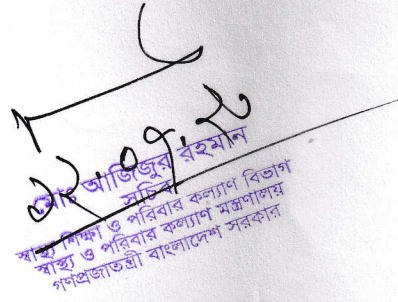 ২২.০৭.২০
মোঃ আজিজুর রহমান
সচিব
স্বাস্থ্য শিক্ষা ও পরিবার কল্যাণ বিভাগ
স্বাস্থ্য ও পরিবার কল্যাণ মন্ত্রণালয়
গণপ্রজাতন্ত্রী বাংলাদেশ সরকার